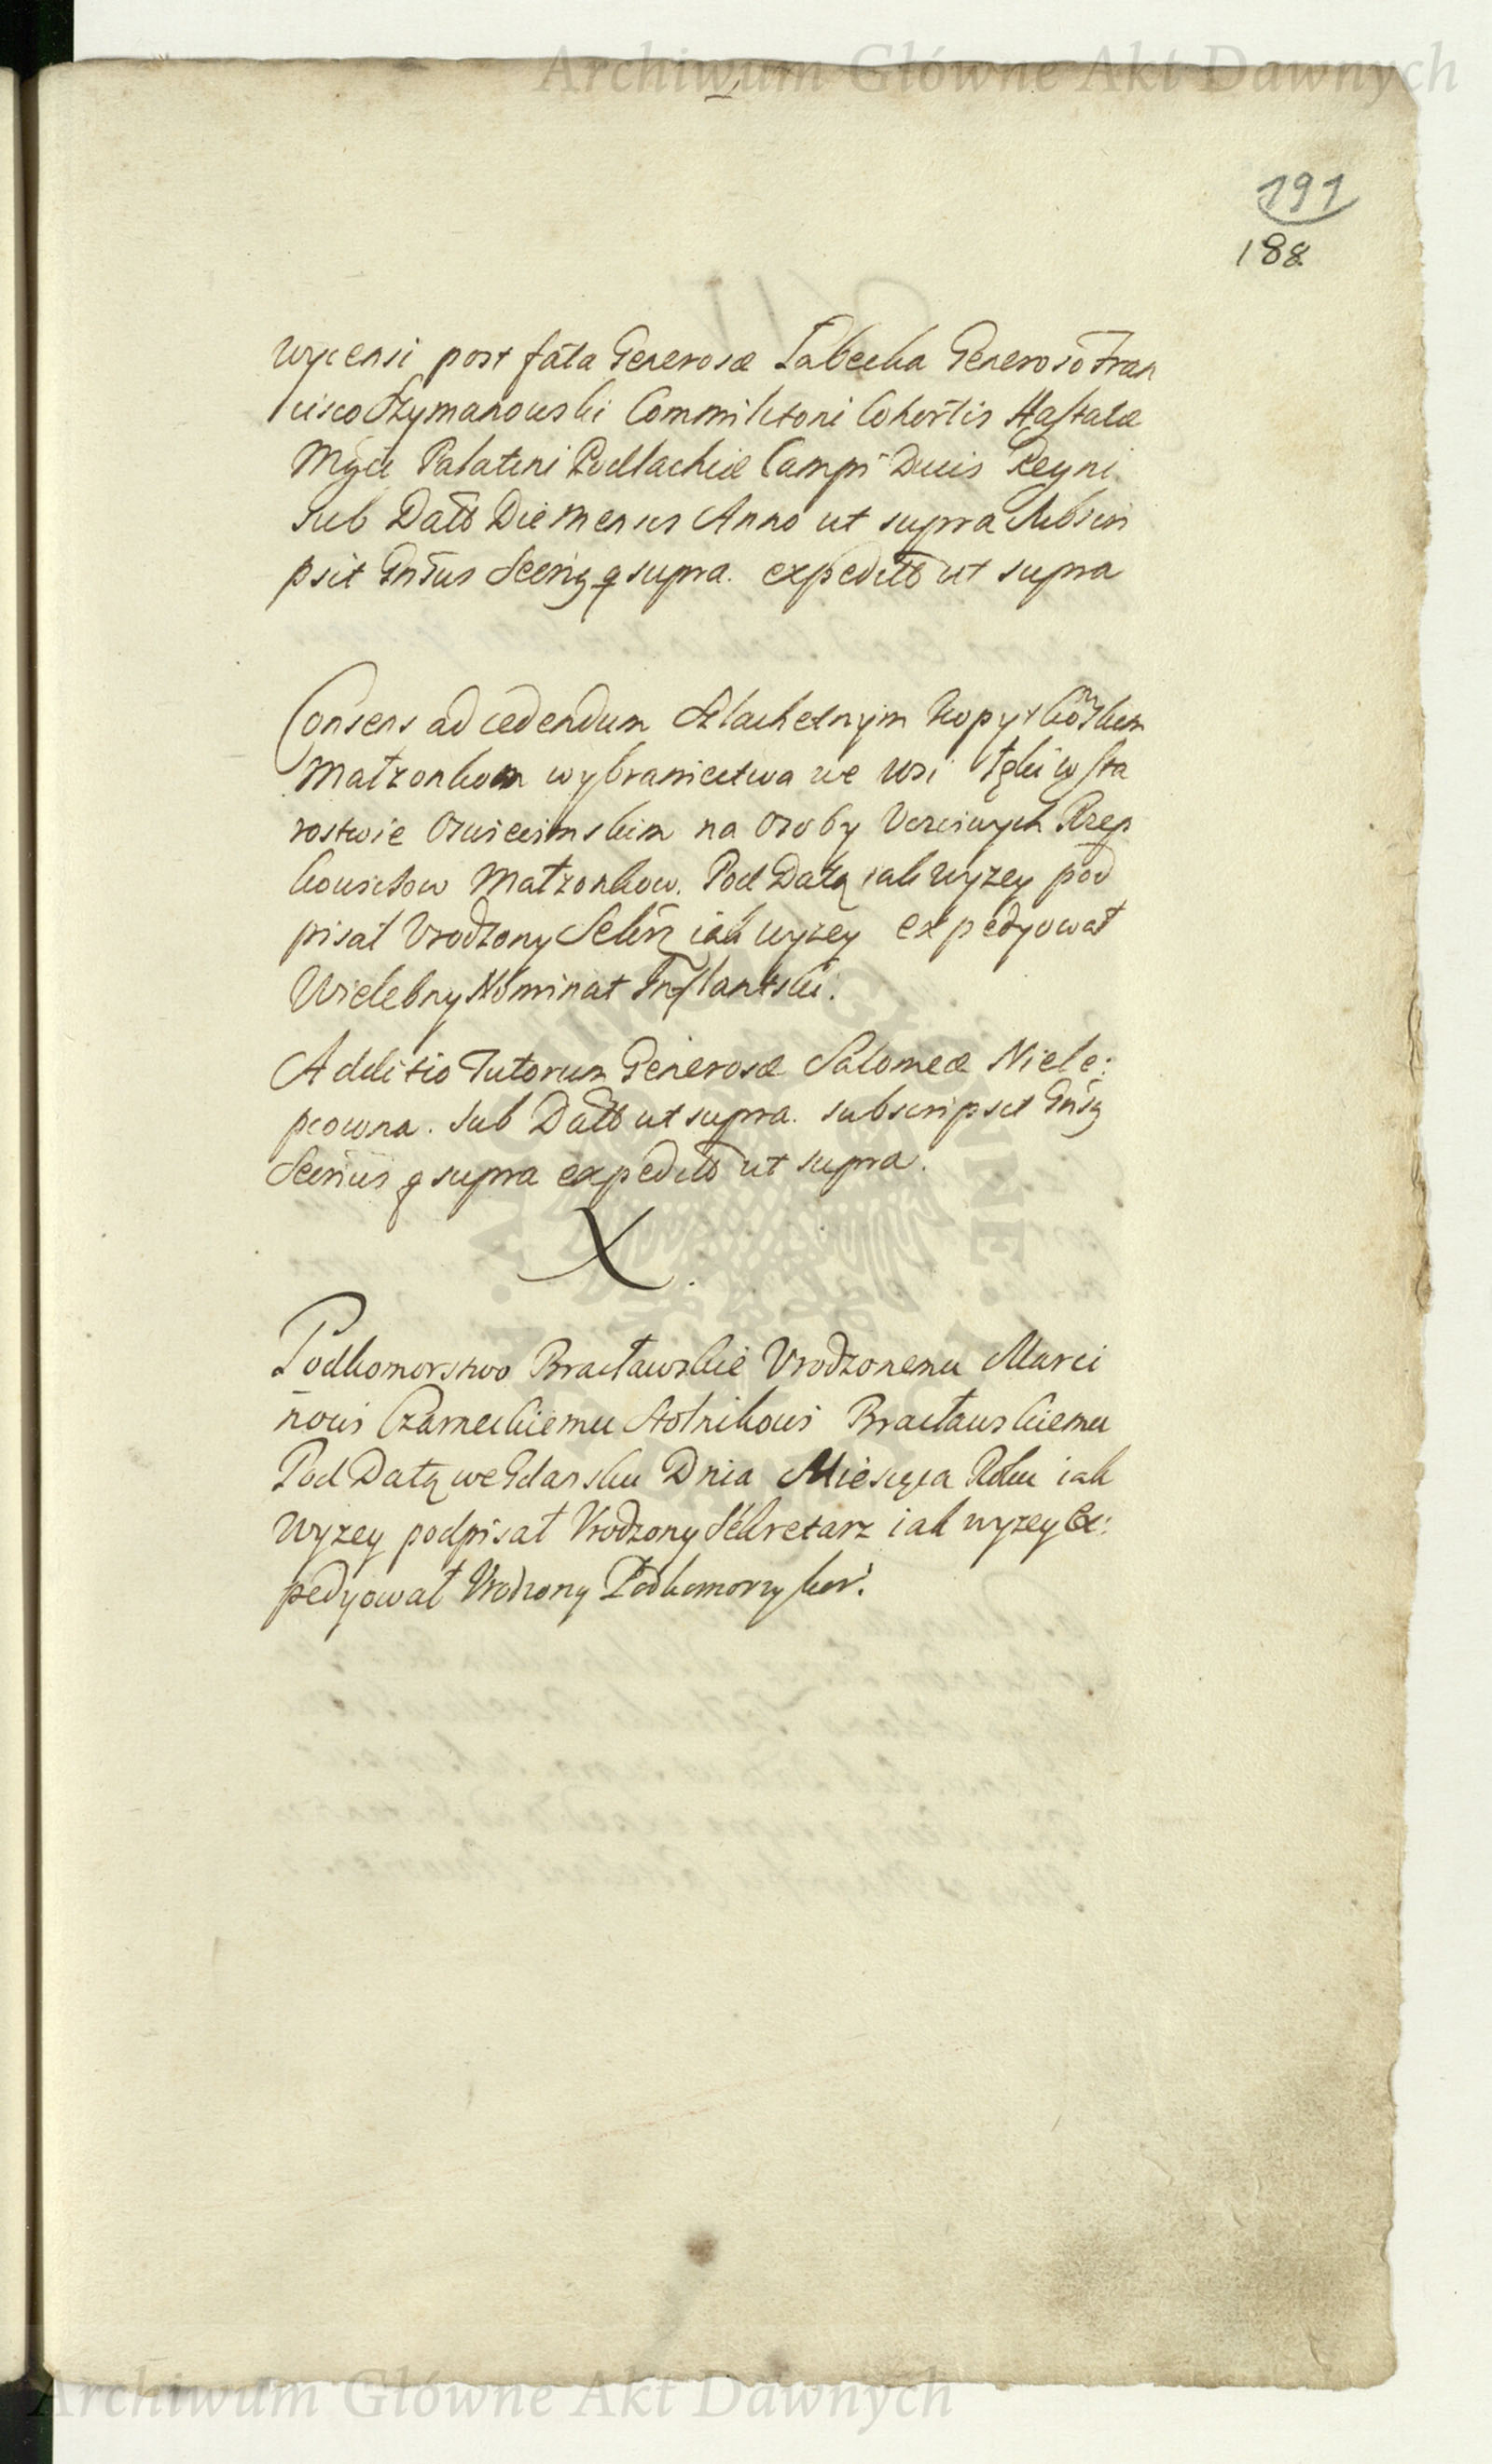 Archiwum Główne Akt Dawnych
191
188
wycensi post fata Generosæ Łabecka Generoso Fran
cisco Szymanowski Commilitoni Cohortis Hastatæ
Mgci Palatini Podlachiæ Campi Ducis Regni
Sub Datt Die Mensis Anno ut supra subscri
psit Gnsus Secriz q supra. expeditt ut supra
Consens ad cedendum Szlachetnym Kopytkowskim
Małzonkom wybraniectwa we wsi Łęki w Sta
rostwie Oswiecimskim na osoby Uczciwych Rzep
kowictow Małzonkow. Pod Datą iak wyzey pod
pisał Vrodzony Sekrz iak wyzey expedyował
Wielebny Nominat Inflantski.
Additio Tutorum Generosæ Salomeæ Niele:
pcowna. Sub Datt ut supra. subscripsit Gnsz
Scrius q supra expeditt ut supra.
X
Podkomorstwo Bracławskie Vrodzonemu Marci
nowi Czarneckiemu Stolnikowi Bracławskiemu
Pod Datą we Gdansku Dnia Miesięca Roku iak
wyzey podpisał Vrodzony Sekretarz iak wyzey Ex:
pedyował Vrodzony Podkomorzy kor:
ARCHIWUM GŁÓWNE AKT DAWNYCH
Archiwum Główne Akt Dawnych